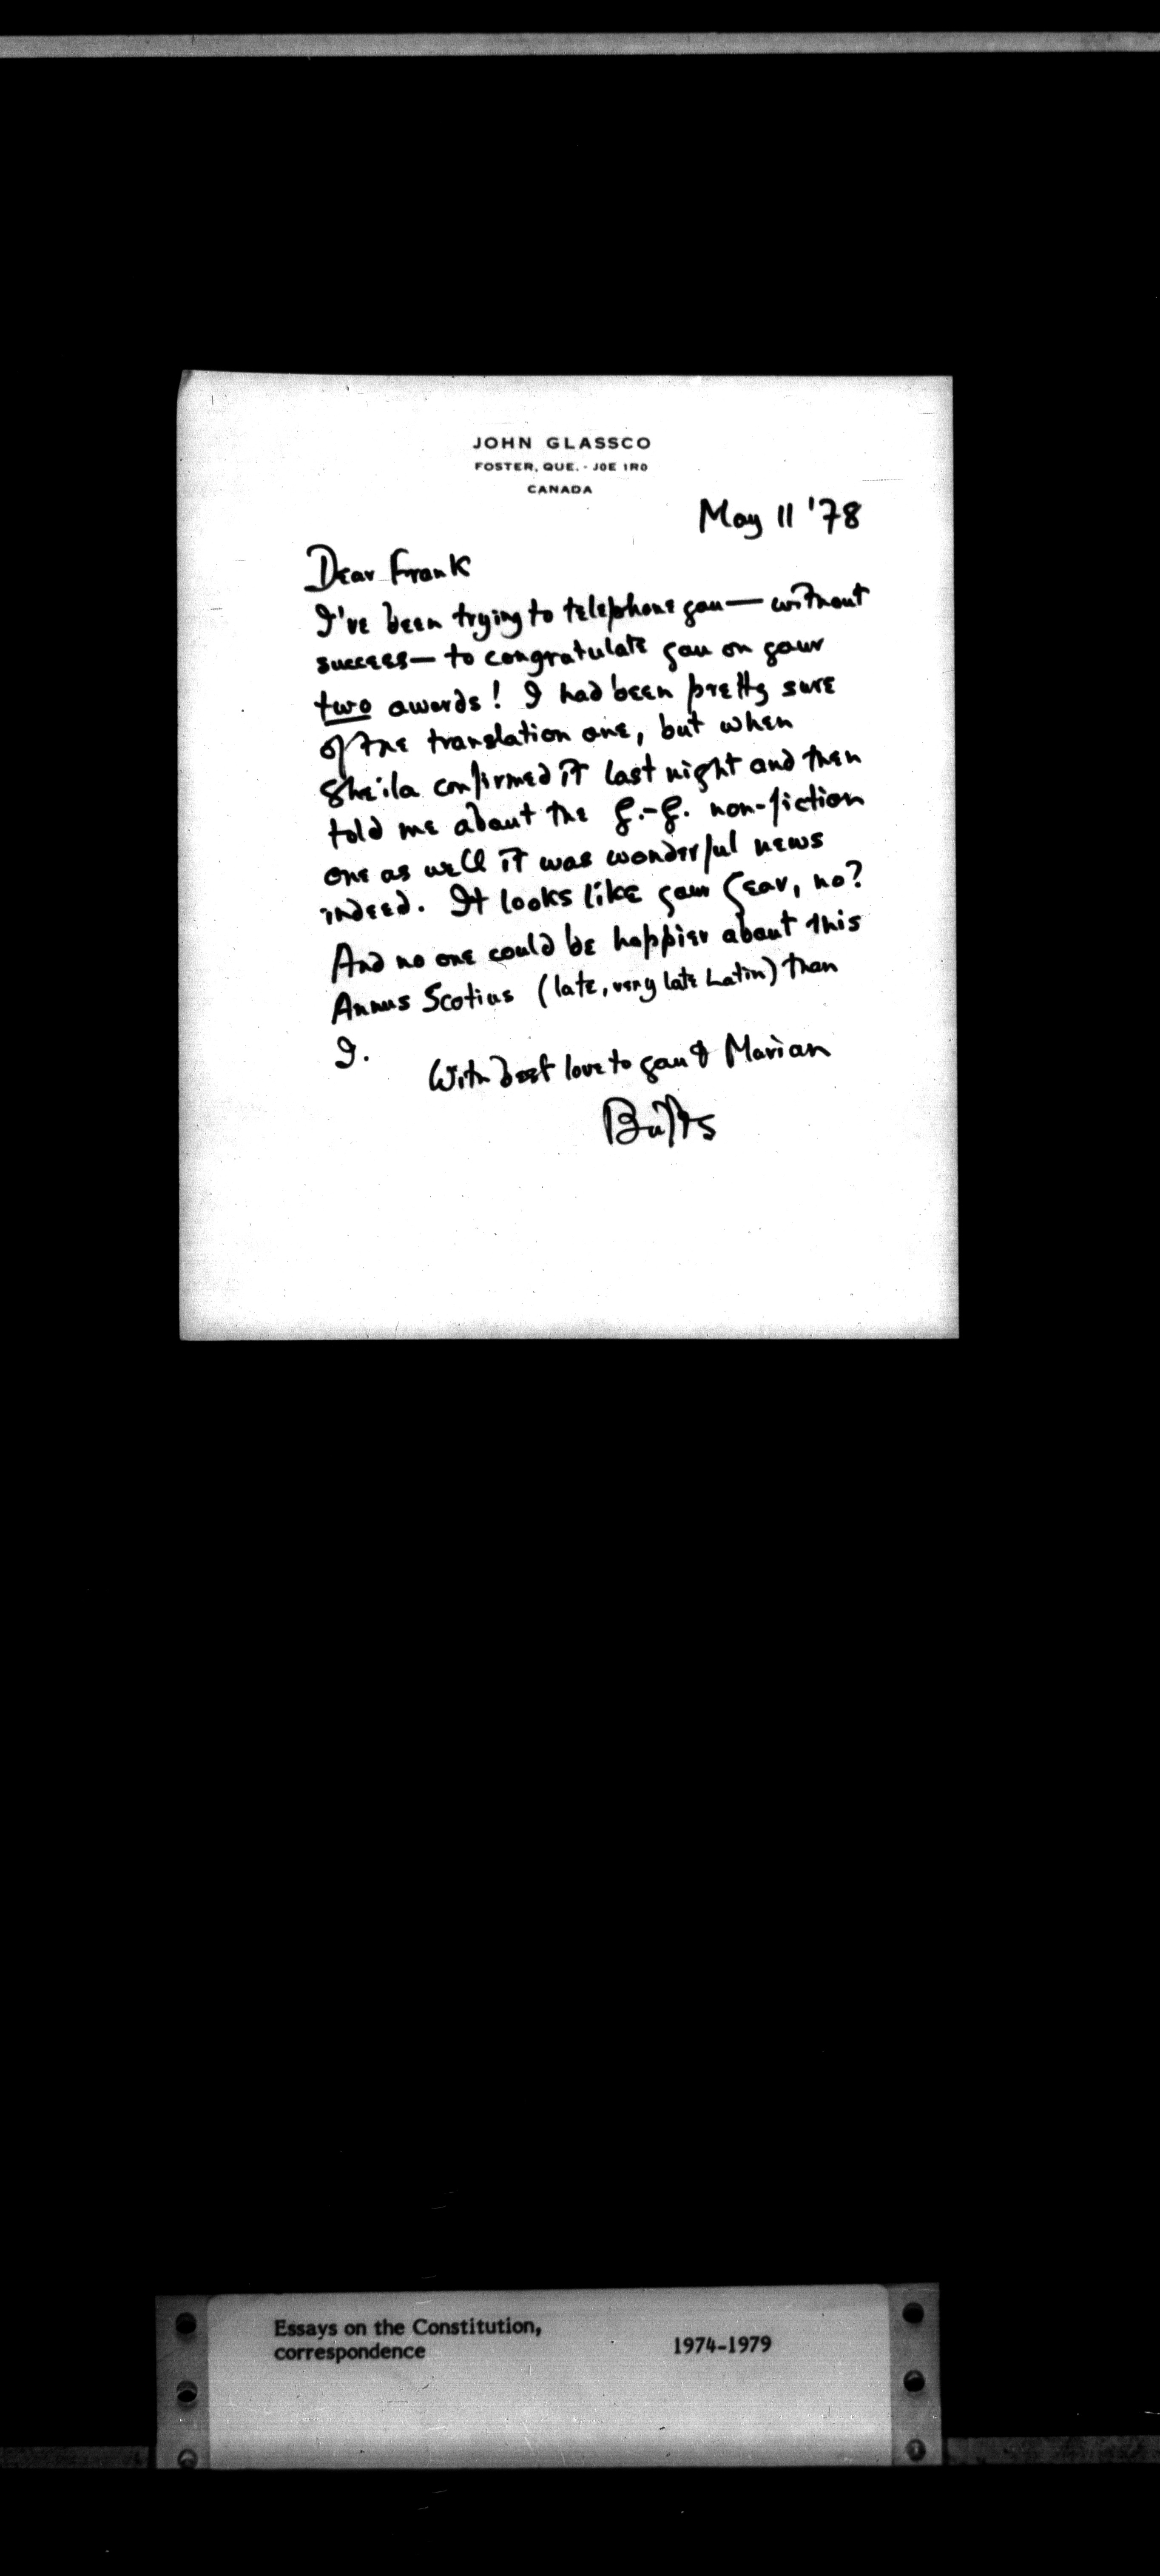 JOHN GLASSCO
FOSTER, QUE. - J0E 1R0
CANADA
May 11 '78
Dear Frank
I've been trying to telephone you — without
success — to congratulate you on your
two awards! I had been pretty sure
of the translation one, but when
Sheila confirmed it last night and then
told me about the G.-G. non-fiction
one as well it was wonderful news
indeed. It looks like your year, no?
And no one could be happier about this
Annus Scotius (late, very late Latin) than
I.
With best love to you & Marian
Buffy
Essays on the Constitution,
correspondence
1974-1979